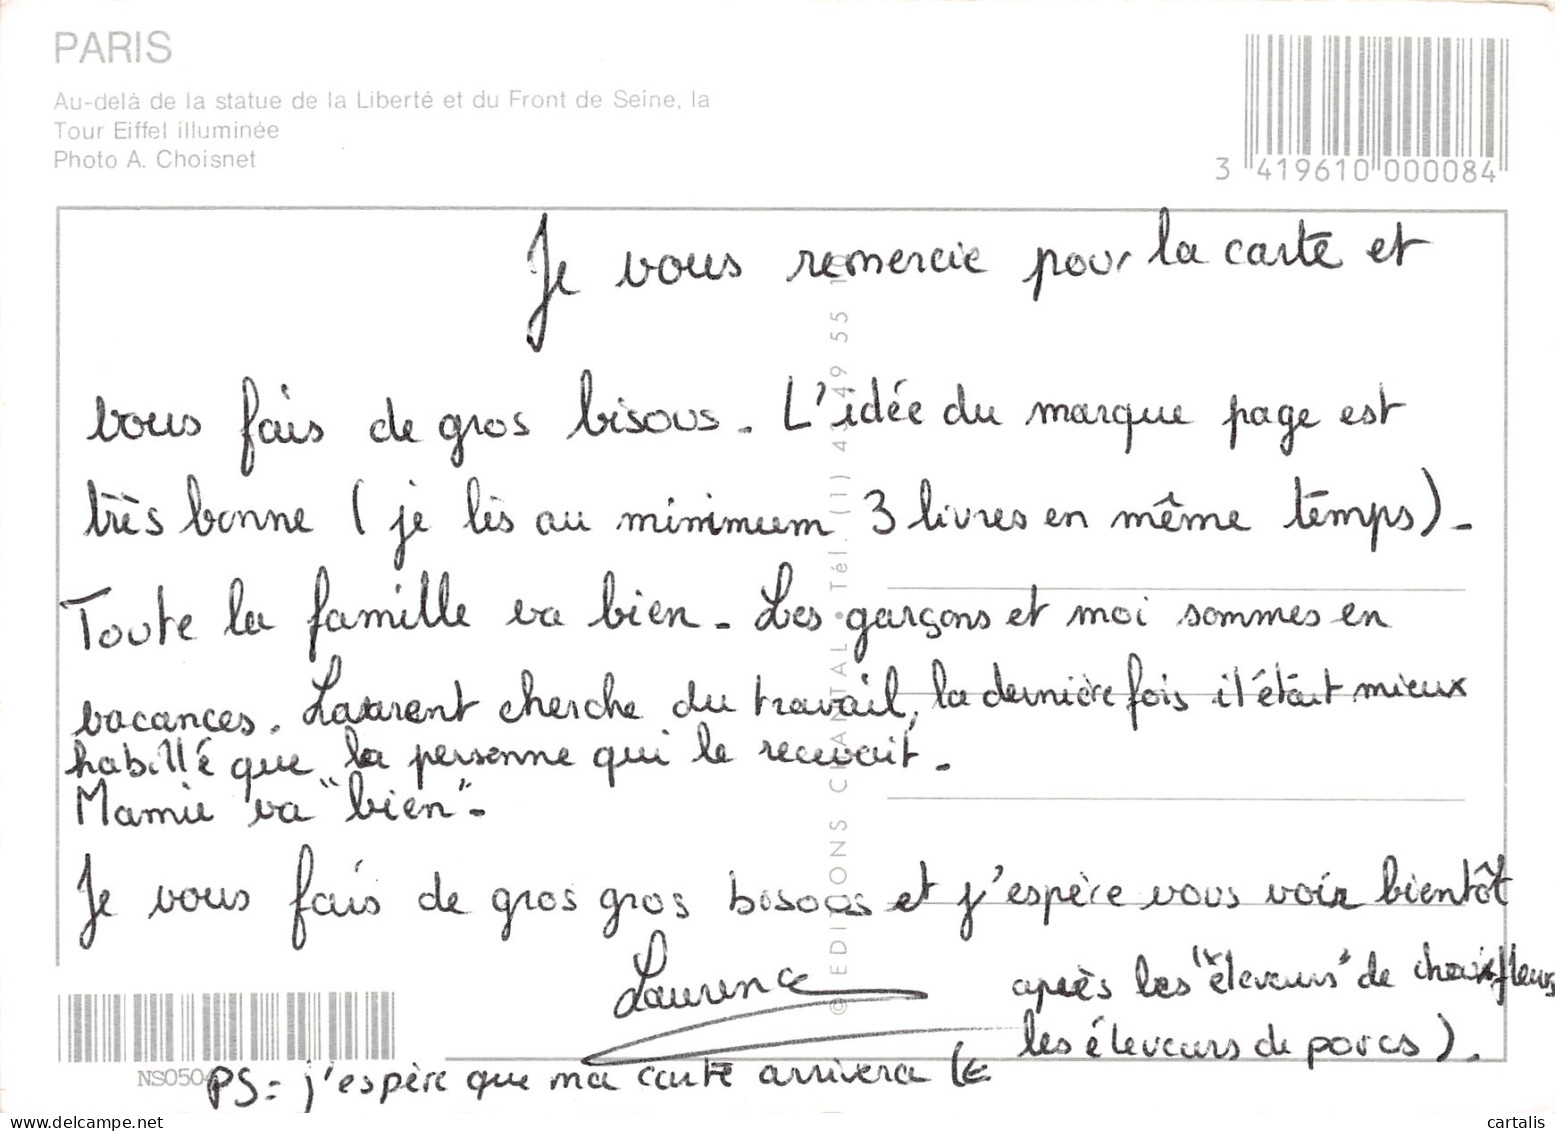 PARIS
Au-delà de la statue de la Liberté et du Front de Seine, la
Tour Eiffel illuminée
Photo A. Choisnet
3 419610 000084
Je vous remercie pour la carte et
vous fais de gros bisous. L'idée du marque page est
très bonne (je lis au minimum 3 livres en même temps).
Toute la famille va bien. Les garçons et moi sommes en
vacances. Laurent cherche du travail, la dernière fois il était mieux
habillé que la personne qui le recevait.
Mamie va "bien".
Je vous fais de gros gros bisous et j'espère vous voir bientôt
Laurence
PS: j'espère que ma carte arrivera (
après les "éleveurs" de
les éleveurs de porcs).
© EDITIONS CHANTAL • Tél. (1) 4 49 55 1
NS050
cartalis